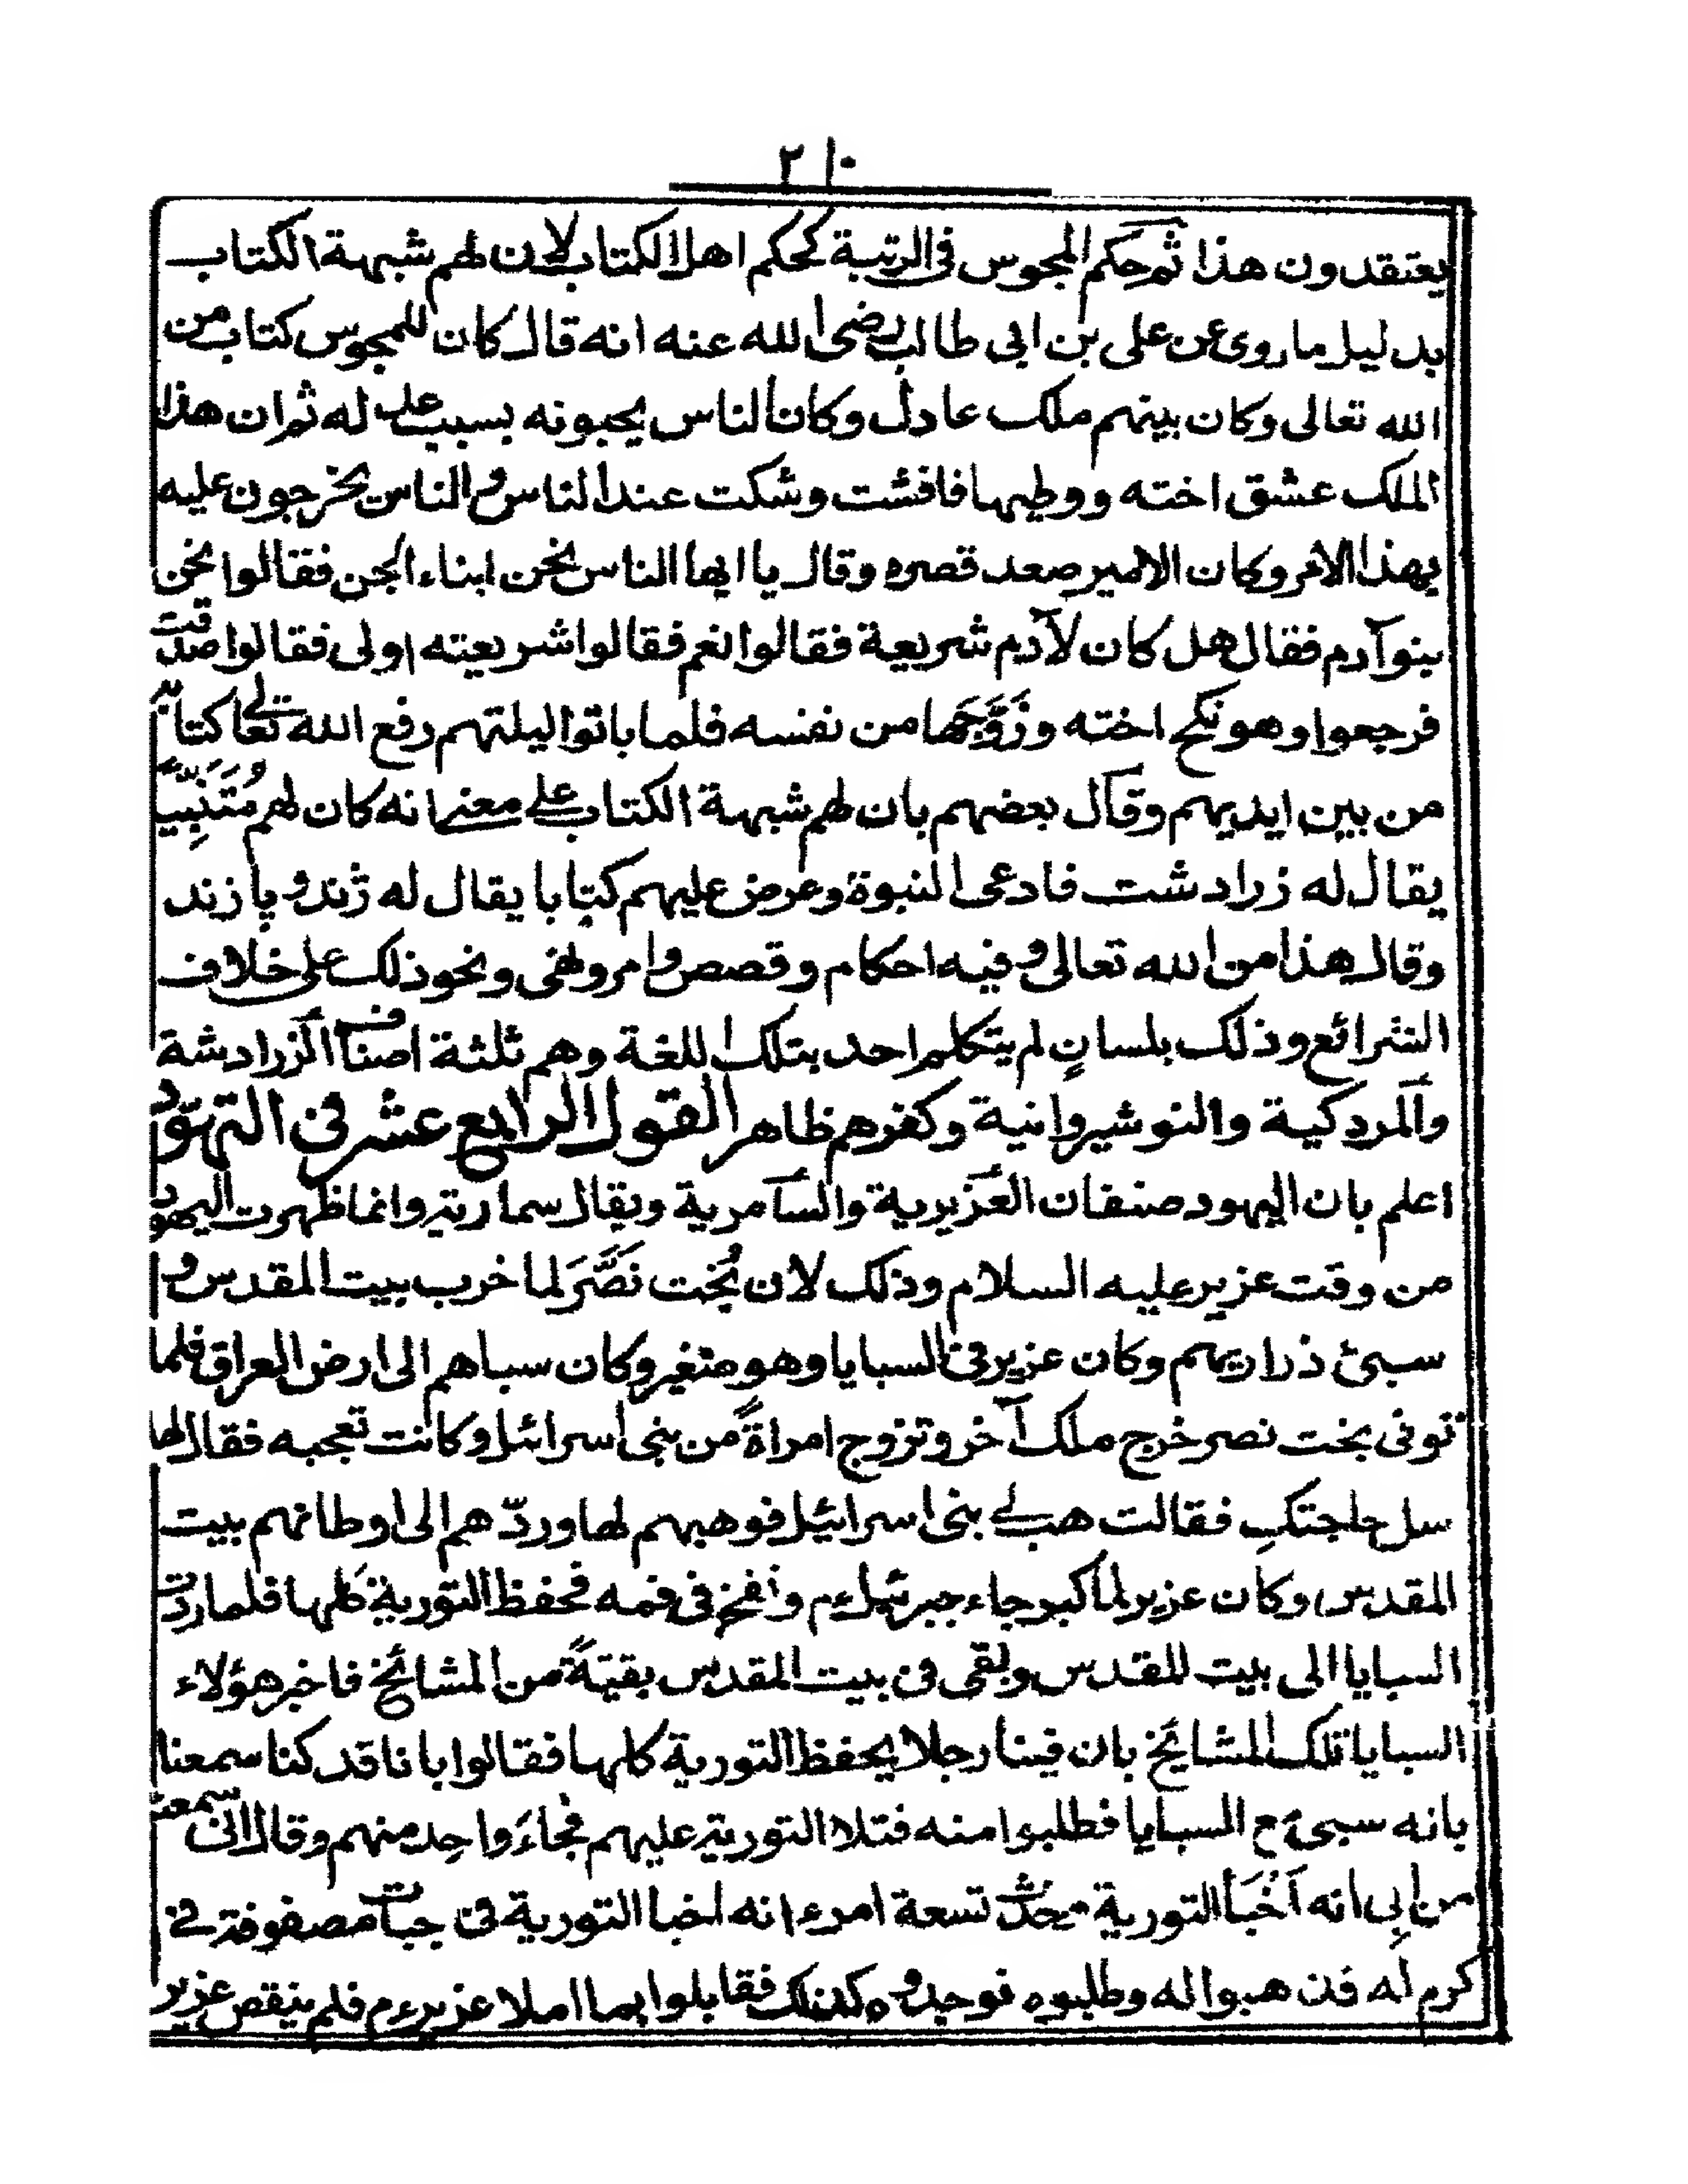 ٢١٠
يعتقدون هذا ثم حكم المجوس فى الرتبة كحكم اهل الكتاب لان لهم شبهة الكتاب
بدليل ماروى عن على بن ابى طالب رضى الله عنه انه قال كان للمجوس كتاب من
الله تعالى وكان بينهم ملك عادل وكان الناس يحبونه بسبب عدله ثم ان هذا
الملك عشق اخته ووطيها فافشت وشكت عند الناس والناس يخرجون عليه
بهذا الامر وكان الامير صعد قصره وقال يا ايها الناس نحن ابناء الجن فقالوا نحن
بنو آدم فقال هل كان لآدم شريعة فقالوا نعم فقالوا شريعته اولى فقالوا صدقت
فرجعوا وهو نكح اخته وزَوَّجَها من نفسه فلما باتوا ليلتهم رفع الله تعالى كتابه
من بين ايديهم وقال بعضهم بان لهم شبهة الكتاب على معنى انه كان لهم مُتَنَبِّيًا
يقال له زرادشت فادعى النبوة وعرض عليهم كتابا يقال له ژند و پازند
وقال هذا من الله تعالى و فيه احكام وقصص وامر ونهى ونحو ذلك على خلاف
الشرائع وذلك بلسانٍ لم يتكلم احد بتلك اللغة وهم ثلثة اصناف الزرادشة
والمردكية والنوشيروانية وكفرهم ظاهر القول الرابع عشر فى التهوّد
اعلم بان اليهود صنفان العزيرية والسامرية ويقال سمارية وانما ظهرت اليهود
من وقت عزير عليه السلام وذلك لان بُخت نَصَّرَ لما خرب بيت المقدس و
سبىٔ ذراريهم وكان عزير فى السبايا وهو صغير وكان سباهم الى ارض العراق فلما
توفى بخت نصر خرج ملك آخر وتزوج امراةً من بنى اسرائيل وكانت تعجبه فقال لها
سل حاجتكِ فقالت هب لى بنى اسرائيل فوهبهم لها وردّهم الى اوطانهم بيت
المقدس وكان عزير لما كبر جاء جبرئيل ءم ونفخ فى فمه فحفظ التورية كلها فلما ردّت
السبايا الى بيت المقدس وبقى فى بيت المقدس بقيّةً من المشائخ فاخبر هؤلاء
السبايا تلك المشايخ بان فينا رجلا يحفظ التورية كلها فقالوا بانا قد كنا سمعنا
بانه سبىٔ مع السبايا فطلبوا منه فتلا التورية عليهم فجاءَ واحد منهم وقال انى سمعت
من ابى انه اَخْبَأ التورية تسعة امرء انه اخبا التورية فى مصفوفة فى
كرم له فذهبوا له وطلبوه فوجدوه كذلك فقابلوا بما املا عزير ءم فلم ينقص عزير